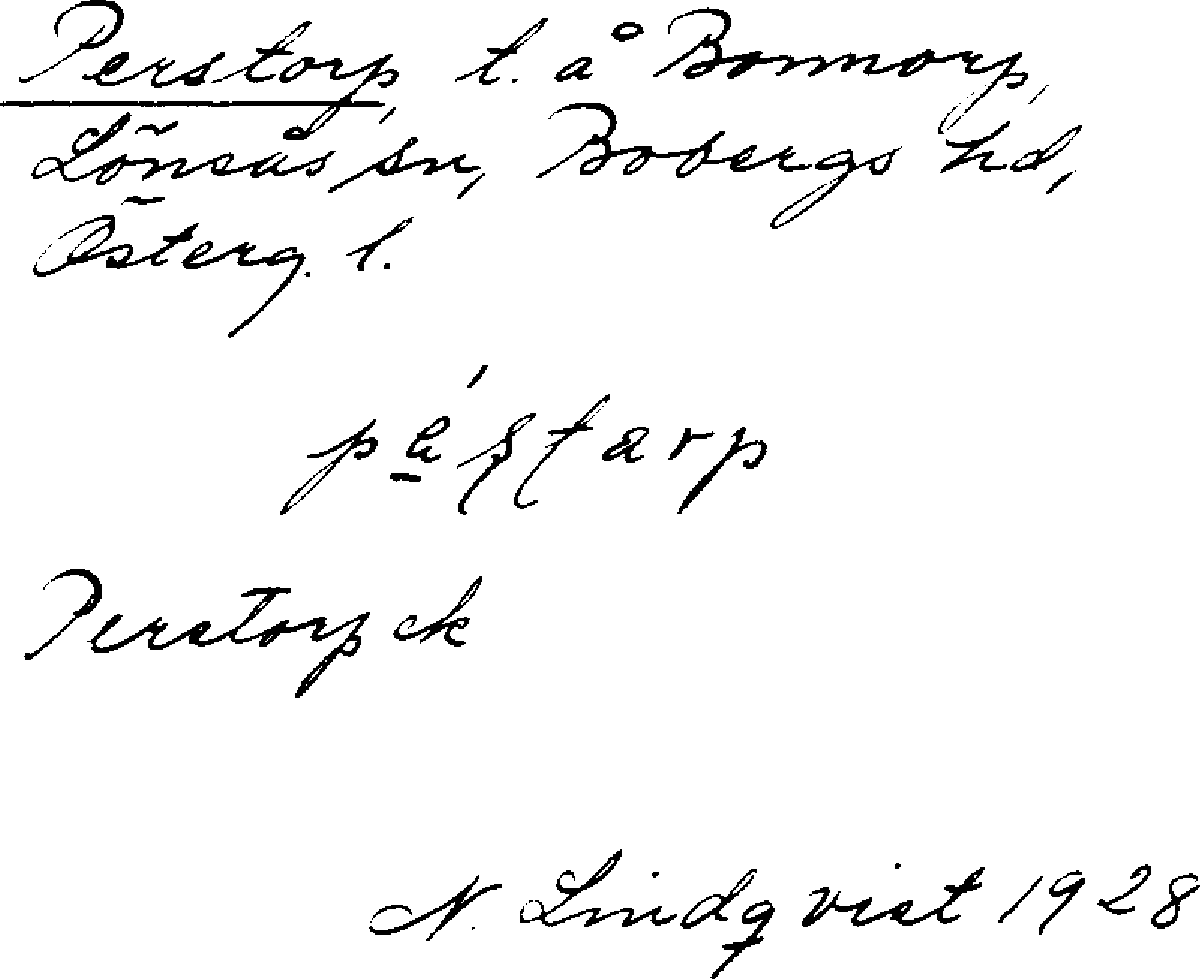 Perstorp, t. å Bonnorp,
Lönsås sn, Bobergs hd,
Österg. l.
Perstorp ek
N. Lindqvist 1928